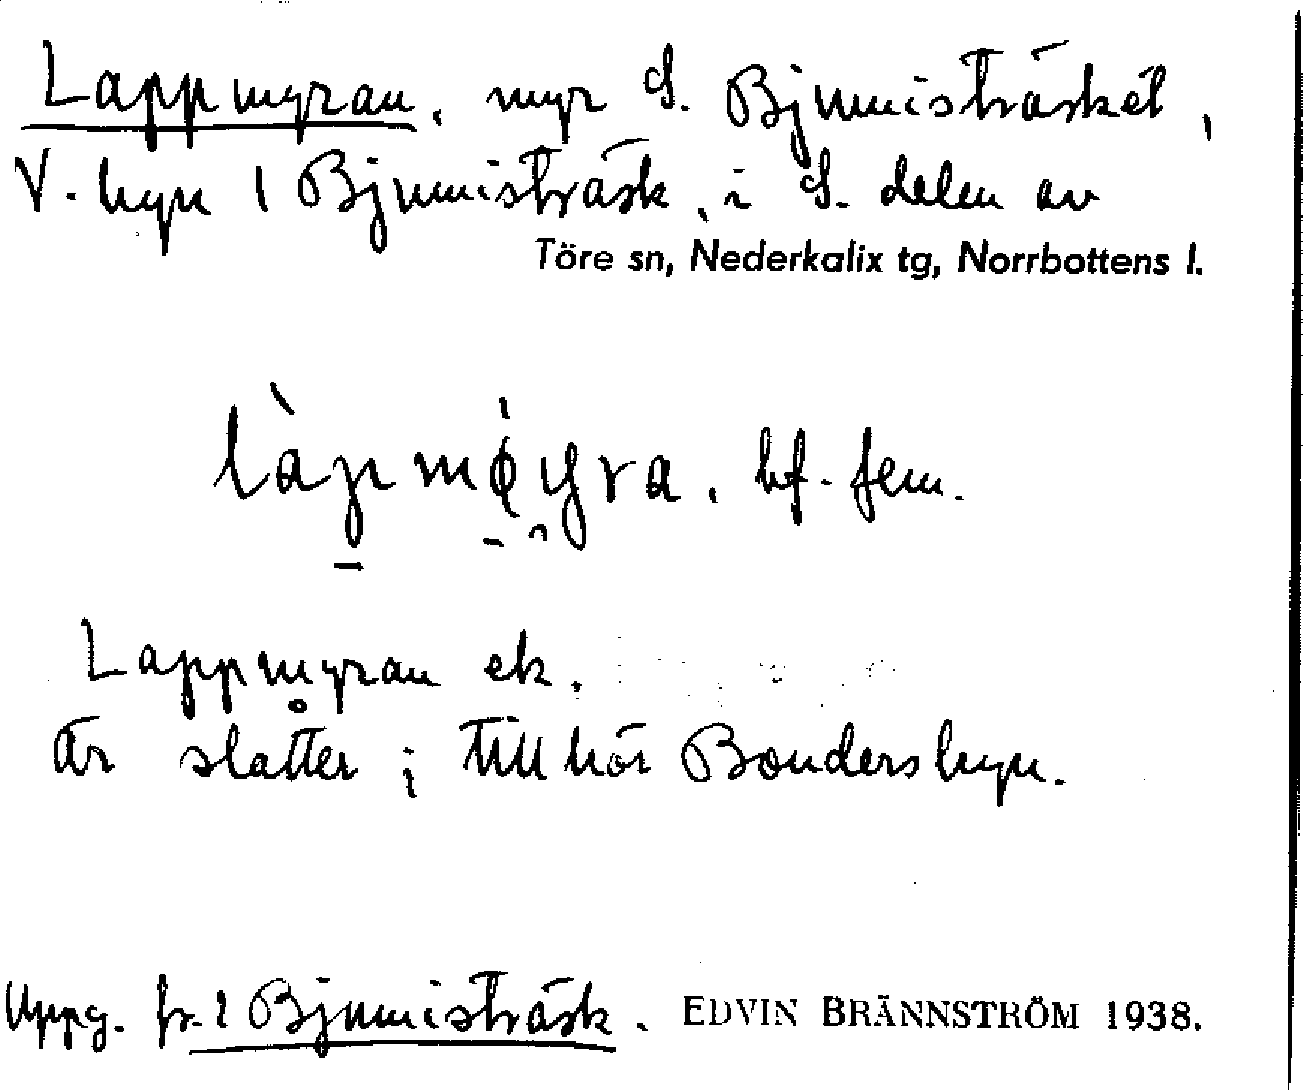 Lappmyran, myr S. Bjumisträsket,
V. byn 1 Bjumisträsk, i S. delen av
Töre sn, Nederkalix tg, Norrbottens l.
bf. fem.
Lappmyran ek.
Är slåtter; tillhör Bondersbyn.
Uppg. fr. 1 Bjumisträsk. EDVIN BRÄNNSTRÖM 1938.